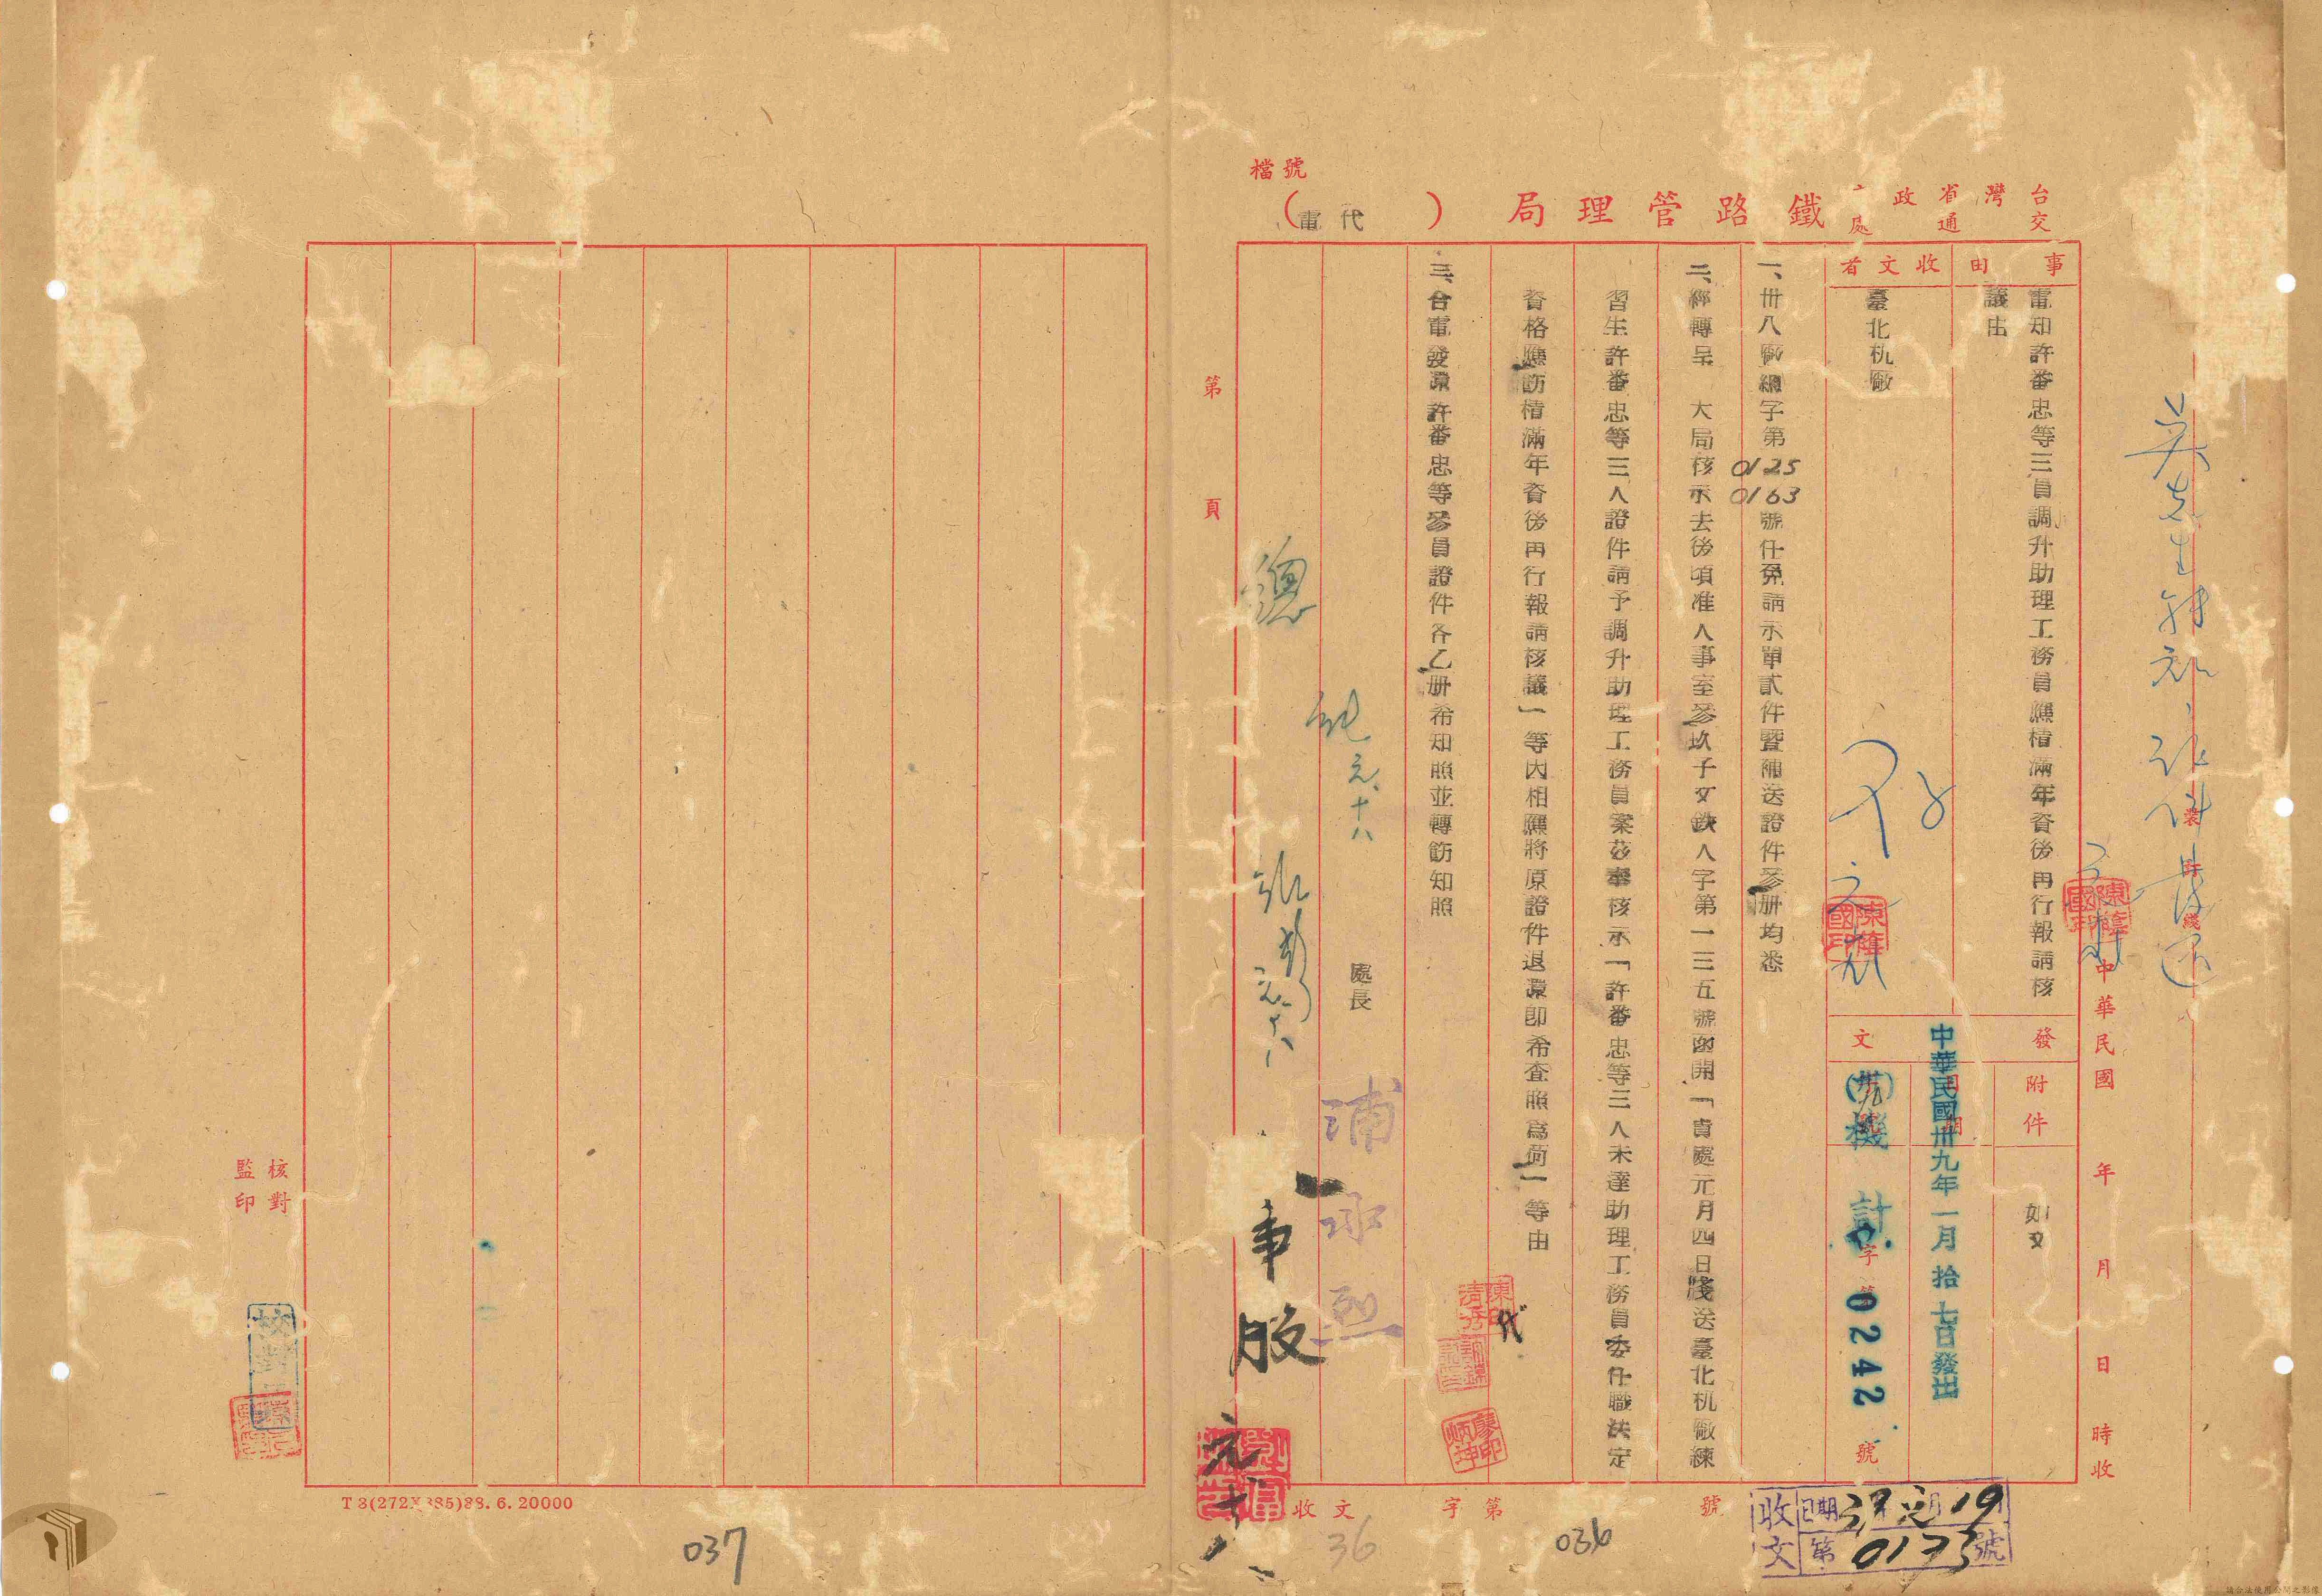 檔號
台灣省政
交通處
鐵路管理局(代電)
事由
電知許番忠等三員調升助理工務員應積滿年資後再行報請核
議由
收文者
臺北机廠
發文
附件
如文
日期
中華民國卅九年一月拾七日發出
(卅九)機 計字第02242號
一、卅八廠網字第
0125
0163
號任免請示單貳件暨補送證件參册均悉
二、經轉呈 大局核示去後頃准人事室參玖子文鉄人字第一三五號函開「貴處元月四日箋送臺北机廠練
習生許番忠等三人證件請予調升助理工務員案茲奉核示「許番忠等三人未達助理工務員委任職法定
資格應飭積滿年資後再行報請核議」等因相應將原證件退還即希查照為荷」等由
三、合電發還許番忠等參員證件各乙册希知照並轉飭知照
處長
浦 永 烈
代
元十八
事股
元十八
中華民國 年 月 日 時收
裝訂線
第 頁
收文 字第 號
收文
日期 39 元 19
第0173號
36
036
核對
監印
校對
T 3(272X385)38.6.20000
037